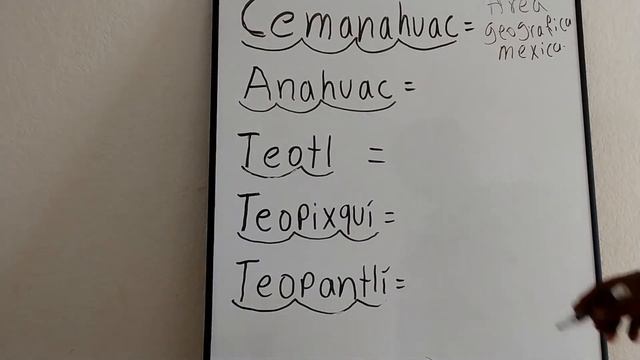 Cemanahuac = Area
geografica
mexica.
Anahuac =
Teotl =
Teopixquí =
Teopantlí =